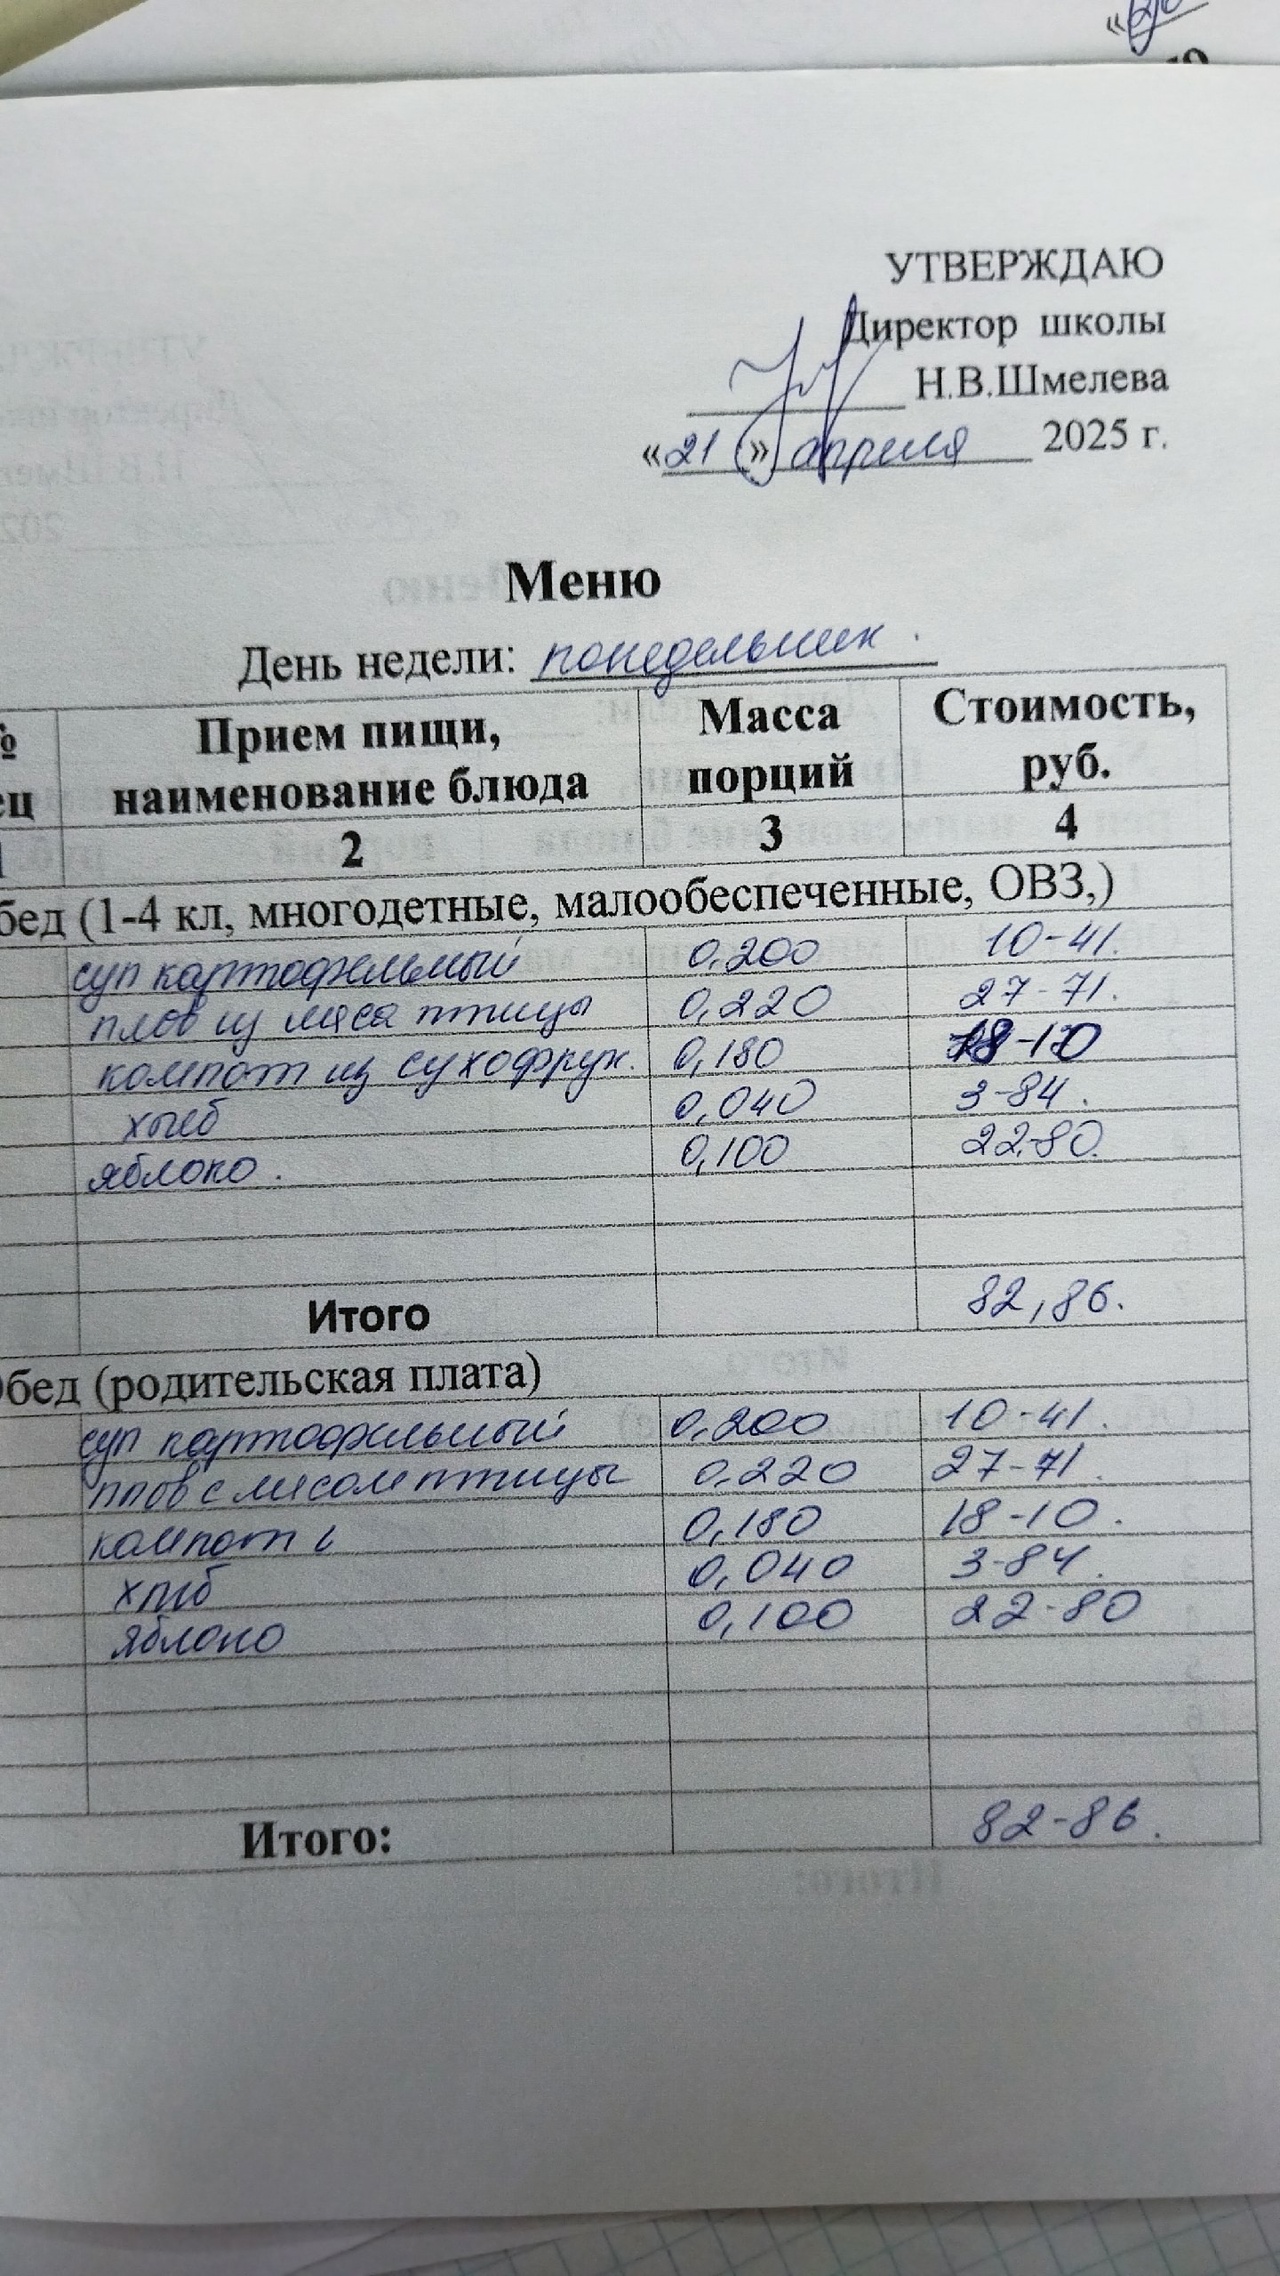 УТВЕРЖДАЮ
Директор школы
Н.В.Шмелева
«21» апреля 2025 г.
Меню
День недели: понедельник.
Прием пищи, наименование блюда Масса порций Стоимость, руб.
2 3 4
бед (1-4 кл, многодетные, малообеспеченные, ОВЗ,)
суп картофельный 0,200 10-41.
плов из мяса птицы 0,220 27-71.
компот из сухофрук. 0,180 18-10
хлеб 0,040 3-84.
яблоко. 0,100 22-80.
Итого 82,86.
Обед (родительская плата)
суп картофельный 0,200 10-41.
плов с мясом птицы 0,220 27-71.
компот 0,180 18-10.
хлеб 0,040 3-84.
яблоко 0,100 22-80
Итого: 82-86.